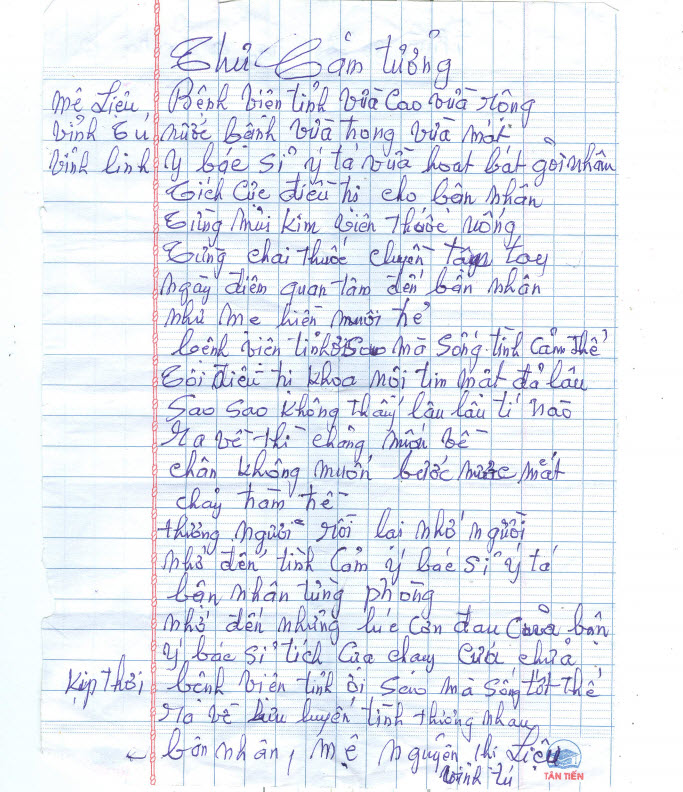 Thư Cảm tưởng
mê Liêu Bênh viên tỉnh vừa cao vừa rộng
vĩnh Tú nước bênh vừa trong vừa mát
vĩnh linh y bác sĩ y tá vừa hoạt bát gồi nhâm
Tích Cức điều tri cho bên nhân
Từng mũi Kim viên thuốc uống
Từng chai thuốc chuyền tân tay
ngày điêm quan tâm đến bên nhân
như mẹ hiền nuôi trẻ
bênh viên tỉnh ơi Sao mà Sống tình Cảm thế
Tôi điều tri khoa nôi tim mât đả lâu
Sao Sao không thấy lâu lâu tí nào
Ra về thì chẳng muốn về
chân không muốn bước nước mắt
chảy hàm hề
thương người rồi lai nhớ người
nhớ đến tình Cảm y bác sĩ y tá
bên nhân từng phòng
nhớ đến những lúc cơn đau của bên
y bác sĩ tích Cức chay Cứu chửa
kịp thời bênh viên tỉnh ơi Sao mà Sống tốt thế
Ra về lưu luyến tình thương nhau
bên nhân, mẹ nguyên thi Liệu
vinh tú
TÂN TIẾN